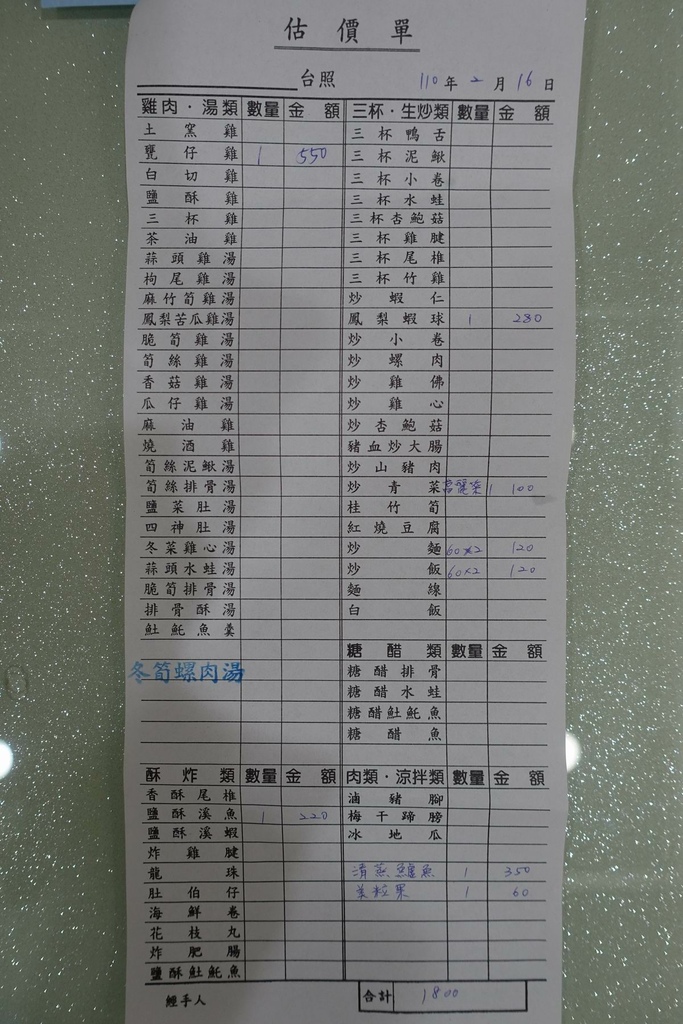 估價單
台照 110年2月16日
雞肉·湯類 數量 金額
土窯雞
甕仔雞 1 550
白切雞
鹽酥雞
三杯雞
茶油雞
蒜頭雞湯
枸尾雞湯
麻竹筍雞湯
鳳梨苦瓜雞湯
脆筍雞湯
筍絲雞湯
香菇雞湯
瓜仔雞湯
麻油雞
燒酒雞
筍絲泥鰍湯
筍絲排骨湯
鹽菜肚湯
四神肚湯
冬菜雞心湯
蒜頭水蛙湯
脆筍排骨湯
排骨酥湯
魠魚羹
冬筍螺肉湯
三杯·生炒類 數量 金額
三杯鴨舌
三杯泥鰍
三杯小卷
三杯水蛙
三杯杏鮑菇
三杯雞腱
三杯尾椎
三杯竹雞
炒蝦仁
鳳梨蝦球 1 280
炒小卷
炒螺肉
炒雞佛
炒雞心
炒杏鮑菇
豬血炒大腸
炒山豬肉
炒青菜 高麗菜 1 100
桂竹筍
紅燒豆腐
炒麵 60×2 120
炒飯 60×2 120
麵線
白飯
糖醋類 數量 金額
糖醋排骨
糖醋水蛙
糖醋魠魚
糖醋魚
酥炸類 數量 金額
香酥尾椎
鹽酥溪魚 1 220
鹽酥溪蝦
炸雞腱
龍珠
肚伯仔
海鮮卷
花枝丸
炸肥腸
鹽酥魠魚
肉類·涼拌類 數量 金額
滷豬腳
梅干蹄膀
冰地瓜
清蒸鱸魚 1 350
美粒果 1 60
經手人
合計 1800